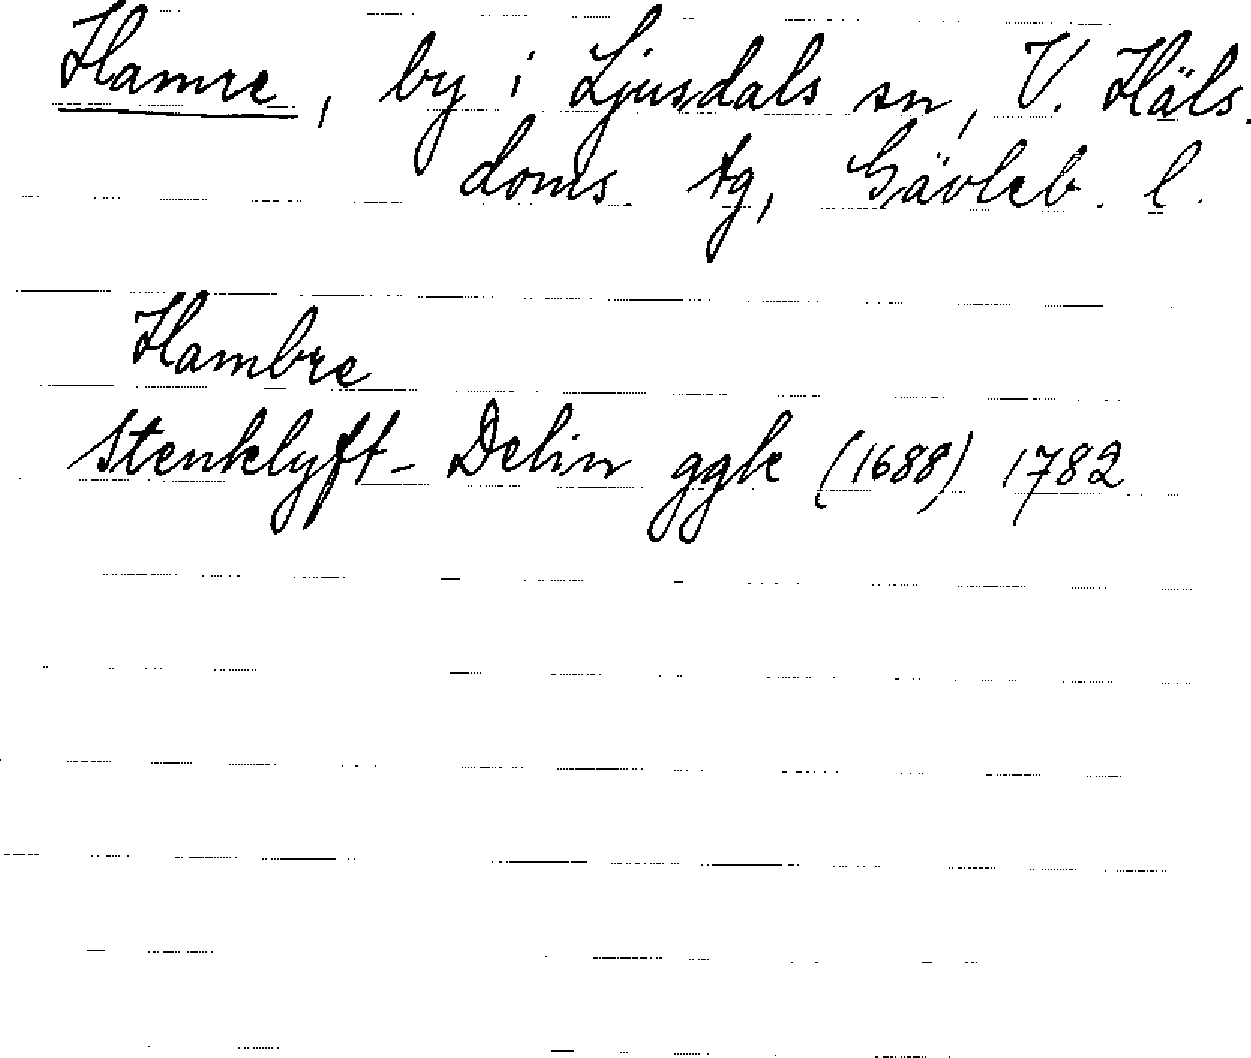 Hamre, by i Ljusdals sn, V. Häls.
doms. tg, Gävleb. l.
Hambre
Stenklyft- Delin ggk (1688) 1782